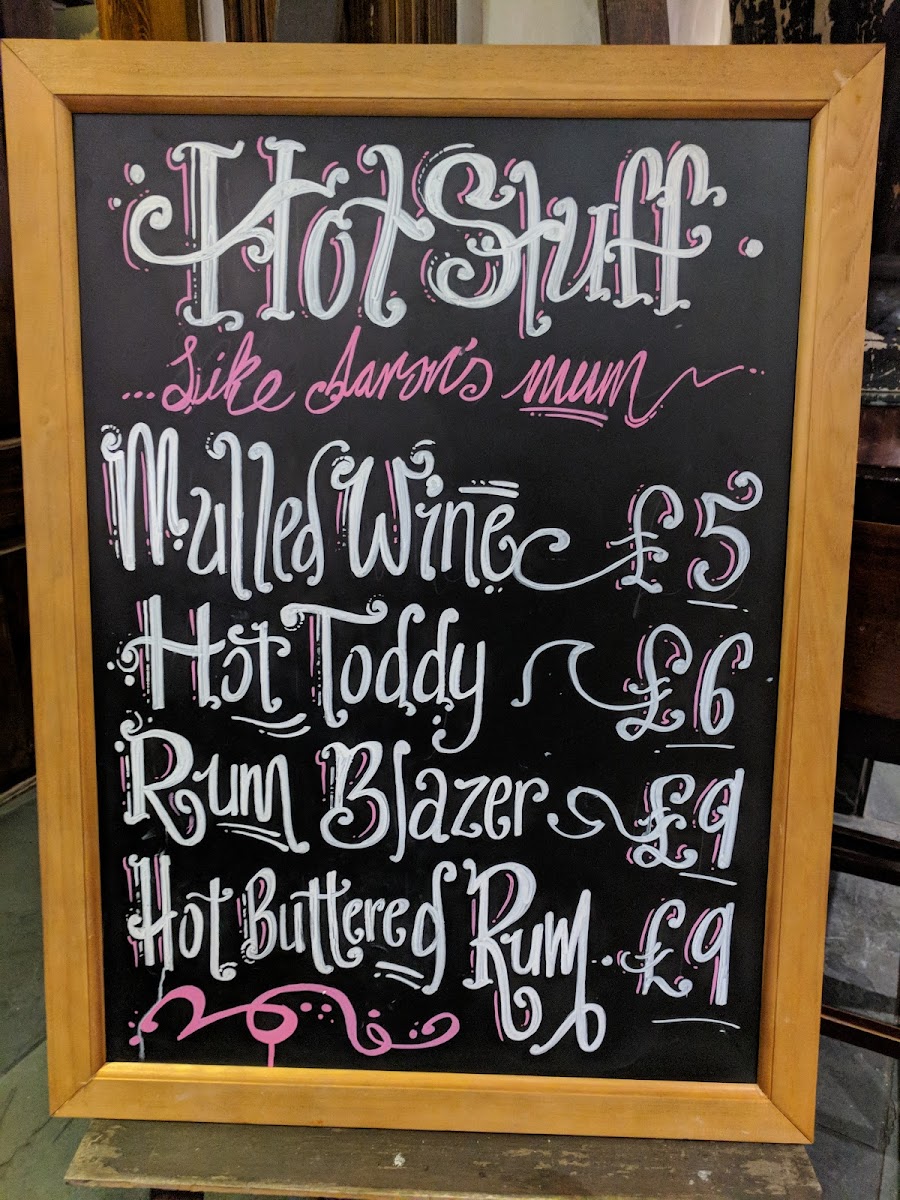 Hot Stuff
...Like Aaron's mum
Mulled Wine £5
Hot Toddy £6
Rum Blazer £9
Hot Buttered Rum £9